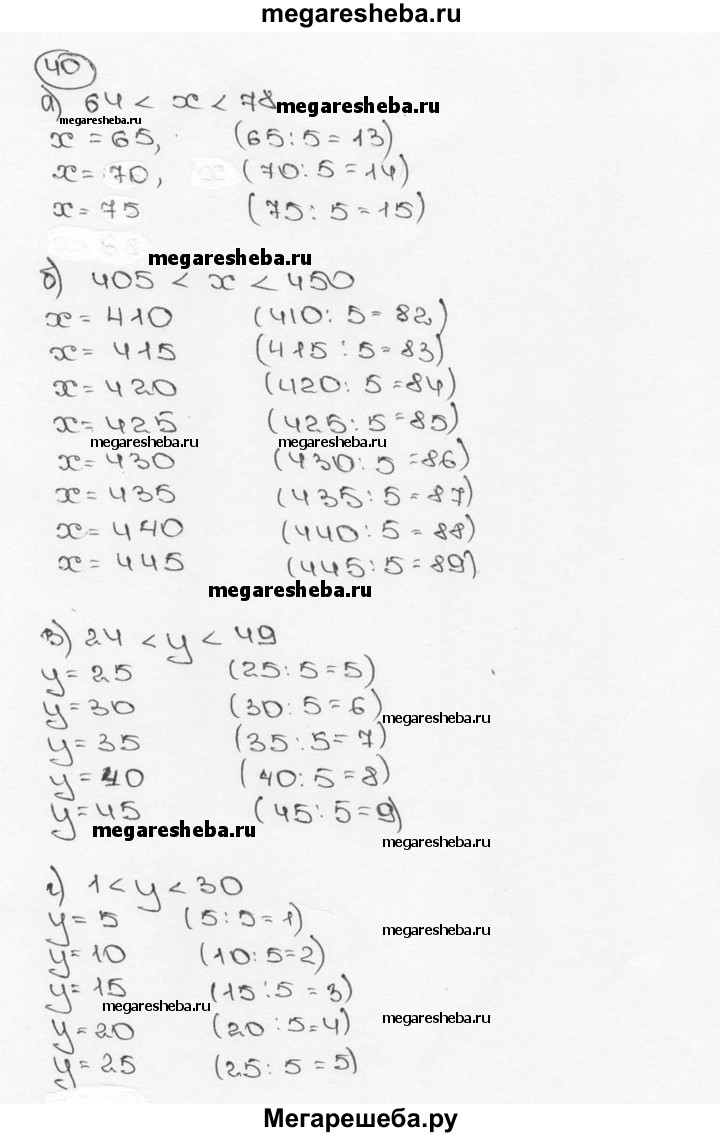 megaresheba.ru
40
а) 64 < x < 78 megaresheba.ru
megaresheba.ru
x = 65, (65 : 5 = 13)
x = 70, (70 : 5 = 14)
x = 75 (75 : 5 = 15)
megaresheba.ru
б) 405 < x < 450
x = 410 (410 : 5 = 82)
x = 415 (415 : 5 = 83)
x = 420 (420 : 5 = 84)
x = 425 (425 : 5 = 85)
megaresheba.ru megaresheba.ru
x = 430 (430 : 5 = 86)
x = 435 (435 : 5 = 87)
x = 440 (440 : 5 = 88)
x = 445 (445 : 5 = 89)
megaresheba.ru
в) 24 < y < 49
y = 25 (25 : 5 = 5)
y = 30 (30 : 5 = 6)
megaresheba.ru
y = 35 (35 : 5 = 7)
y = 40 (40 : 5 = 8)
y = 45 (45 : 5 = 9)
megaresheba.ru
megaresheba.ru
г) 1 < y < 30
y = 5 (5 : 5 = 1)
megaresheba.ru
y = 10 (10 : 5 = 2)
y = 15 (15 : 5 = 3)
megaresheba.ru
megaresheba.ru
y = 20 (20 : 5 = 4)
y = 25 (25 : 5 = 5)
Мегарешеба.ру